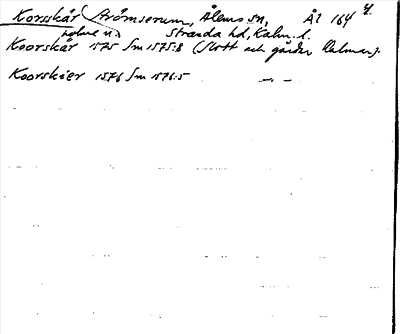 Korsskär Strömserum, Ålems sn, Ål 164 4.
holme i.) Stranda hd, Kalm. l.
Koorskär 1575 Sm 1575:8 (Slott och gårdar Kalmar).
Koorskäer 1576 Sm 1576:5 —"—